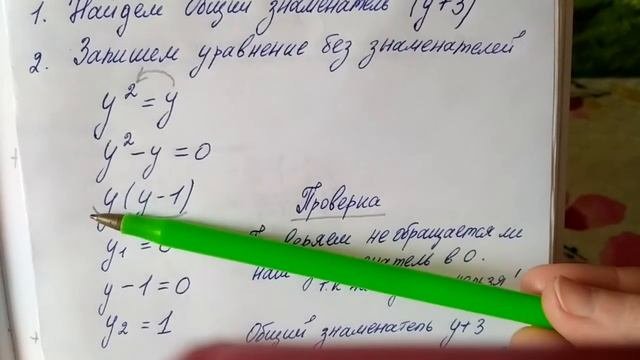 1. Найдем общий знаменатель (y+3)
2. Запишем уравнение без знаменателей
y² = y
y² - y = 0
y(y-1)
y₁ = 0
y - 1 = 0
y₂ = 1
Проверка
не обращается ли
в 0.
наш
Общий знаменатель y+3